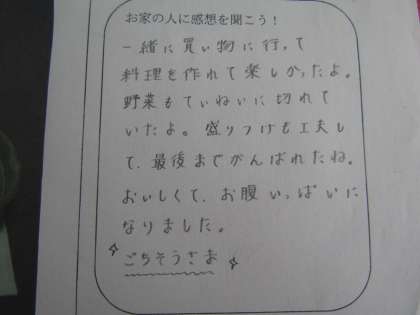 お家の人に感想を聞こう！
一緒に買い物に行って
料理を作れて楽しかったよ。
野菜もていねいに切れて
いたよ。盛りつけも工夫し
て、最後までがんばれたね。
おいしくて、お腹いっぱいに
なりました。
ごちそうさま